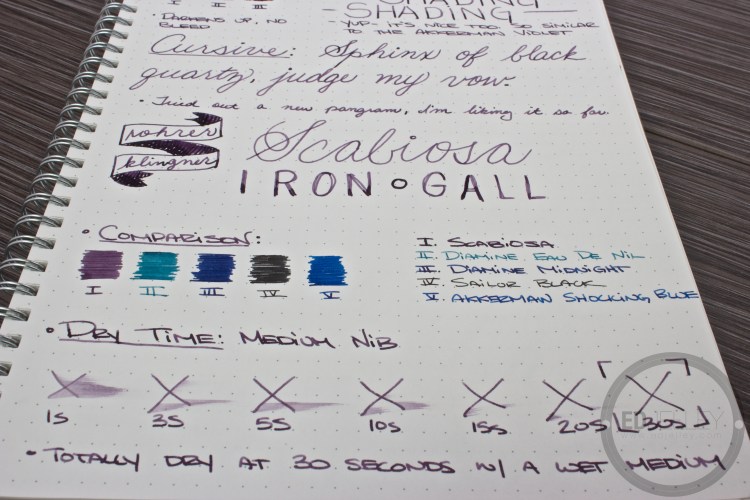 I II III
SHADING
SHADING
• DARKENS UP, NO
BLEED
- YUP- IT'S NICE TOO, SO SIMILAR
TO THE AKKERMAN VIOLET
Cursive: Sphinx of black
quartz, judge my vow.
• Tried out a new pangram, I'm liking it so far.
rohrer
klingner
Scabiosa
IRON GALL
• COMPARISON:
I II III IV V
I. SCABIOSA
II. DIAMINE EAU DE NIL
III. DIAMINE MIDNIGHT
IV. SAILOR BLACK
V. AKKERMAN SHOCKING BLUE
• DRY TIME: MEDIUM NIB
1S 3S 5S 10S 15S 20S 30S
• TOTALLY DRY AT 30 SECONDS W/ A WET MEDIUM